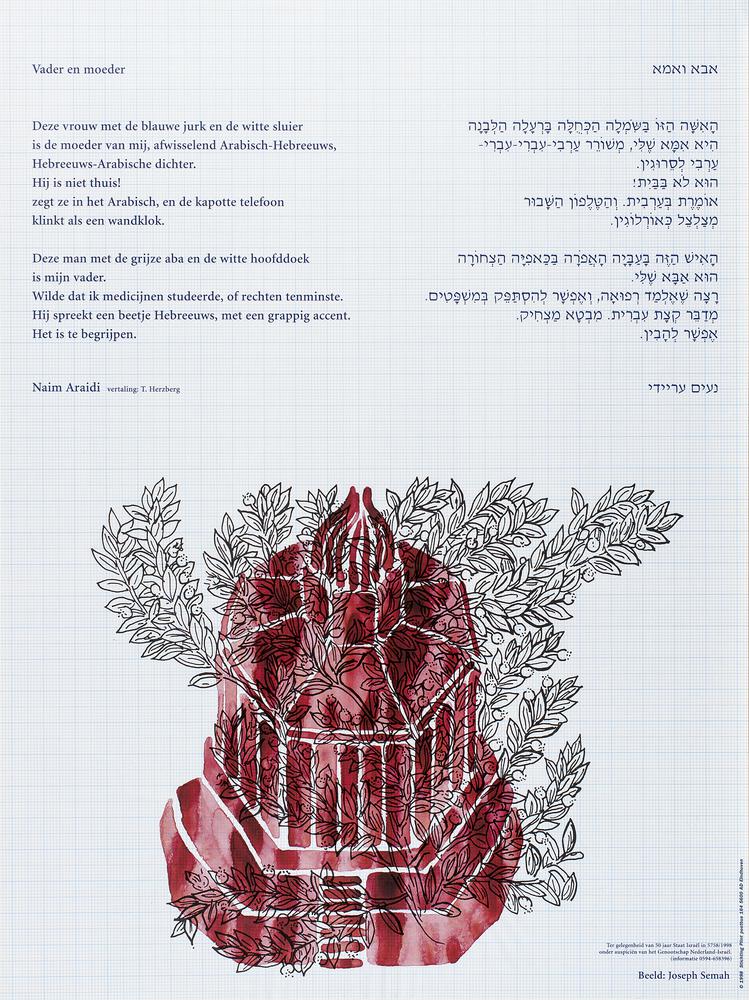 Vader en moeder
Deze vrouw met de blauwe jurk en de witte sluier
is de moeder van mij, afwisselend Arabisch-Hebreeuws,
Hebreeuws-Arabische dichter.
Hij is niet thuis!
zegt ze in het Arabisch, en de kapotte telefoon
klinkt als een wandklok.
Deze man met de grijze aba en de witte hoofddoek
is mijn vader.
Wilde dat ik medicijnen studeerde, of rechten tenminste.
Hij spreekt een beetje Hebreeuws, met een grappig accent.
Het is te begrijpen.
Naim Araidi vertaling: T. Herzberg
אבא ואמא
הָאִשָּׁה הַזּוֹ בַּשִּׂמְלָה הַכְּחֻלָּה בָּרְעָלָה הַלְּבָנָה
הִיא אִמָּא שֶׁלִּי, מְשׁוֹרֵר עֲרָבִי-עִבְרִי-עִבְרִי-
עֲרָבִי לְסֵרוּגִין.
הוּא לֹא בַּבַּיִת!
אוֹמֶרֶת בְּעַרְבִית. וְהַטֶּלֶפוֹן הַשָּׁבוּר
מְצַלְצֵל כְּאוֹרְלוֹגִין.
הָאִישׁ הַזֶּה בָּעֲבָּיָה הָאֲפֹרָה בַּכַּאפִיָּה הַצְּחוֹרָה
הוּא אַבָּא שֶׁלִּי.
רָצָה שֶׁאֶלְמַד רְפוּאָה, וְאֶפְשָׁר לְהִסְתַּפֵּק בְּמִשְׁפָּטִים.
מְדַבֵּר קְצָת עִבְרִית. מִבְטָא מַצְחִיק.
אֶפְשָׁר לְהָבִין.
נעים עריידי
Ter gelegenheid van 50 jaar Staat Israël in 5758/1998
onder auspiciën van het Genootschap Nederland-Israël.
(informatie 0594-658396)
Beeld: Joseph Semah
© 1998 Stichting Plint postbus 164 5600 AD Eindhoven